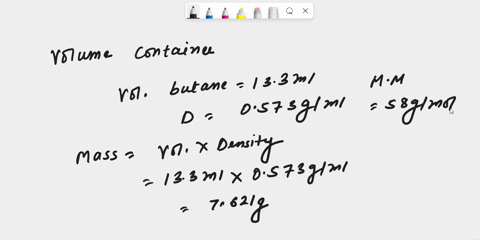 Volume Container
Vol. butane = 13.3ml
M.M
D = 0.573g/ml
= 58g/mol
Mass = Vol. × Density
= 13.3ml × 0.573g/ml
= 7.621g